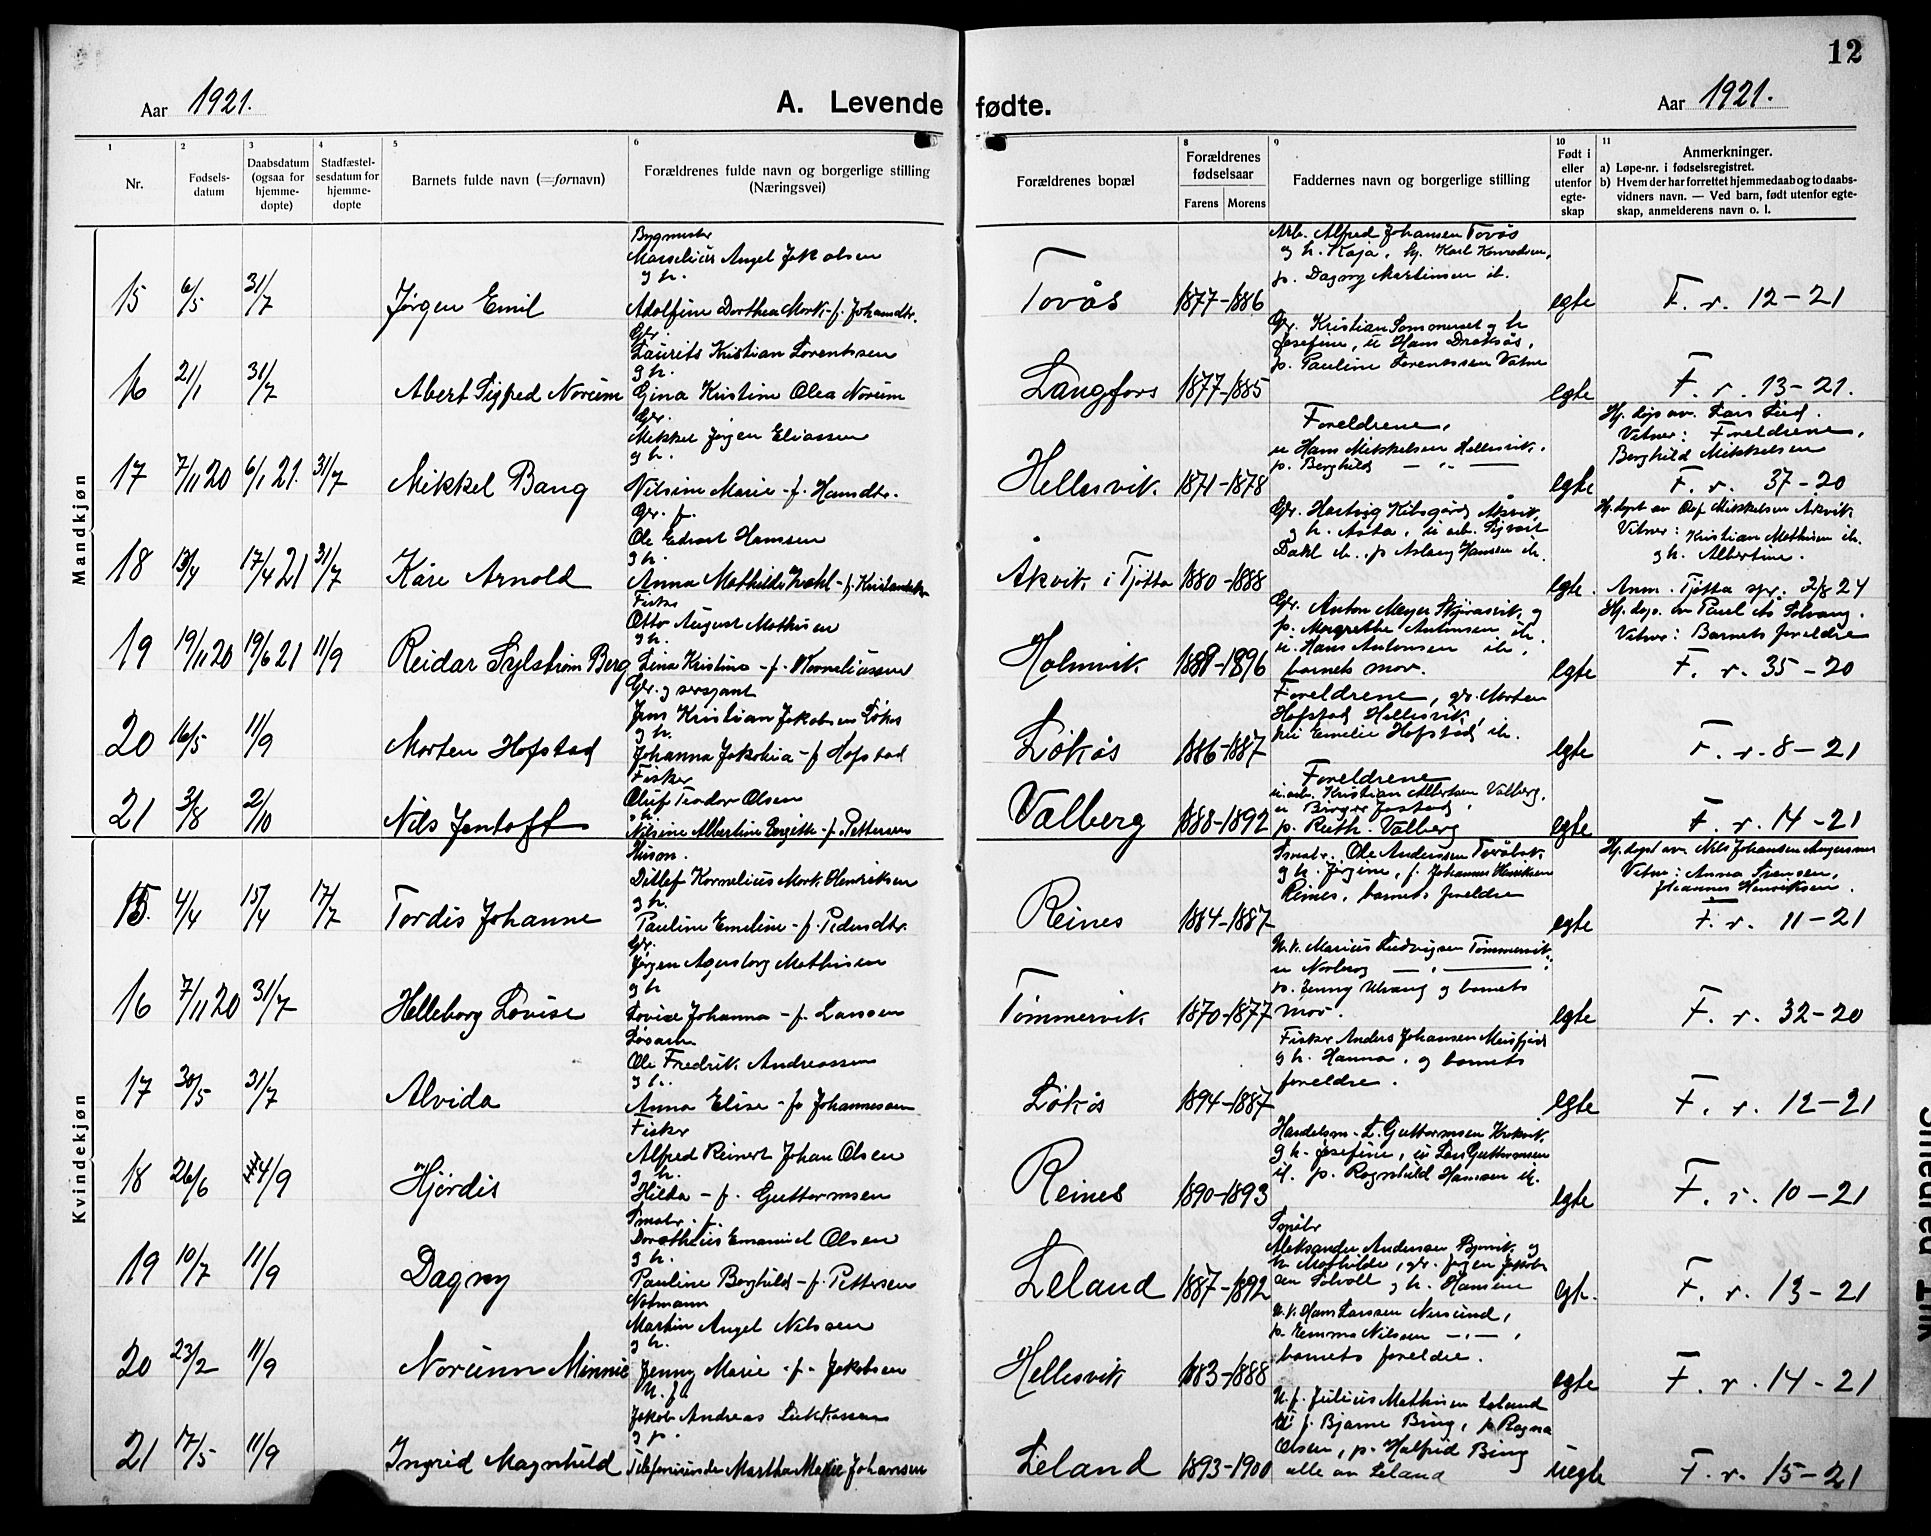 12
Aar 1921.
A. Levende fødte.
Aar 1921.
1
Nr.
2
Fødsels-
datum
3
Daabsdatum
(ogsaa for
hjemme-
døpte)
4
Stadfæstel-
sesdatum for
hjemme-
døpte
5
Barnets fulde navn (=fornavn)
6
Forældrenes fulde navn og borgerlige stilling
(Næringsvei)
Forældrenes bopæl
8
Forældrenes
fødselsaar
Farens Morens
9
Faddernes navn og borgerlig stilling
10
Født i
eller
utenfor
egte-
skap
11
Anmerkninger.
a) Løpe-nr. i fødselsregistret.
b) Hvem der har forrettet hjemmedaab og to daabs-
vidners navn. — Ved barn, født utenfor egte-
skap, anmelderens navn o. l.
Mandkjøn
15 6/5 31/7 Jørgen Emil
Bygmester
Marselius Angel Jakobsen
g h.
Adolfine Dorthea Mork. - f. Johansdtr.
Tovås 1877-1886
Arb. Alfred Johansen Tovås
g h. Kaja, Karl Konradsen,
p. Dagny Martinsen ib.
egte F. r. 12-21
16 21/1 31/7 Abert Sigfred Norum
Gbr.
Laurits Kristian Lorentsen
g h.
Gina Kristine Olea Norum
Langfors 1877-1885
Gr. Kristian Sommerset g h
Josefine, u Hans
p. Pauline Lorentssen Vatne
egte F. r. 13-21.
17 7/11 20 6/1 21. 31/7 Mikkel Bang
Gbr.
Mikkel Jørgen Eliassen
g h.
Nilsine Marie - f. Hansdtr.
Hellesvik. 1871-1878
Foreldrene,
u Hans Mikkelsen Hellesvik.
p. Berghild — " —
egte
Hj. døp av. Lars Lied.
Vitner: Foreldrene,
Berghild Mikkelsen
F. r. 37-20
18 13/4 17/4 21 31/7 Kåre Arnold
Gbr. f.
Ole Edvart Hanssen
g h.
Anna Mathilde - f.
Åkvik i Tjøtta 1880-1888
Gbr. Hartvig Kibsgård Åkvik
g h. Asta, u arb. Sigvart
Dahl ib., p Aslaug Hansen ib.
egte.
Hj. døpt av Mikkelsen Åkvik
Vitner: Kristian Mathisen ib.
g h. Albertine.
Anm. Tjøtta spr. 2/8 24
19 19/11 20 19/6 21 11/9 Reidar Sylstrøm Berg
Fisker
Otto August Mathisen
g h.
Lina Kristine - f. Korneliussen
Holmvik 1889-1896
Gbr. Anton Meyer g
p. Margrethe Antonsen ib.
u. Hans Antonsen ib,
barnets mor.
egte
Hj. døp. av Paul As Solvang.
Vitner: Barnets foreldre
F. r. 35-20
20 16/5 11/9 Morten Hofstad
Gbr. g sersjant
Jens Kristian Jakobsen Løkås
g h.
Johanna Jakobia - f Hofstad
Løkås 1886-1887
Foreldrene, gbr. Morten
Hofstad Hellesvik,
Emelie Hofstad ib.
egte F. r. 8-21
21 3/8 2/10 Nils Jentoft
Fisker
Oluf Teodor Olsen
g h.
Nilsine Albertine Bergitte - f. Pettersen
Valberg 1888-1892
Foreldrene
u. arb. Kristian Albertsen Valberg,
u Birger
p. Ruth. Valberg
egte F. r. 14-21
Kvindekjøn
15. 4/4 15/4 17/7 Tordis Johanne
Husm.
Ditlef Kornelius Mork. Henriksen
g h.
Pauline Emeline - f. Pedersdtr.
Reines 1864-1887
Småbr. Ole Anderssen
g h. Jørgine, f. Johannes Henriksen
Reines, barnets foreldre
egte
Hj. døpt av Nils Johansen
Vitne: Anna
Johannes Henriksen.
F. r. 11-21
16 7/11 20 31/7 Helleborg Lovise
Gbr.
Jørgen Agensborg Mathisen
g h
Lovise Johanna - f. Larssen
Tømmervik 1870-1877
U. k. Marius Ludvigsen Tømmervik.
u Norberg — " —
p. Jenny Ulvang g barnets
mor.
egte F. r. 32-20
17 30/5 31/7 Alvida
Løsarb.
Ole Fredrik Andreassen
g h.
Anna Elise - f. Johannessen
Løkås 1894-1887
Fisker Anders Johansen Meisfjord
g h. Hanna, g barnets
foreldre.
egte F. r. 12-21
18 26/6 4/9 Hjørdis
Fisker
Alfred Reinert Johan Olsen
g h.
Hilda - f. Guttormsen
Reines 1890-1893
Handelsm. L. Guttormsen
g h. Josefine, u Lars Guttormsen
ib. p. Ragnhild Hansen ib.
egte F. r. 10-21
19 10/7 11/9 Dagny
Småbr. f.
Dorotheus Emanuel Olsen
g h.
Pauline Borghild - f. Pettersen
Leland 1887-1892
Småbr
Aleksander Andersen g
h. Mathilde, gbr. Jørgen Jakob-
sen Solvoll g h. Hansine
egt. F. r. 13-21
20 23/2 11/9 Norunn Minnie
Notmann
Martin Angel Nilssen
g h.
Jenny Marie - f - Jakobsen
Hellesvik 1883-1888
U. k. Hans Larssen Nesund,
p. Emma Nilsen — " — ,
barnets foreldre.
egte F. r. 14-21
21 17/5 11/9 Ingrid Magnhild
U. f.
Jakob Andreas Lukkassen
g p.
Telefonistinde Martha Marie Johansen
Leland 1893-1900
U. f. Julius Mathisen Leland
U f. Bjarne Bing, p Ragna
Olsen, p. Halfrid Bing
alle av Leland
uegte F. r. 15-21